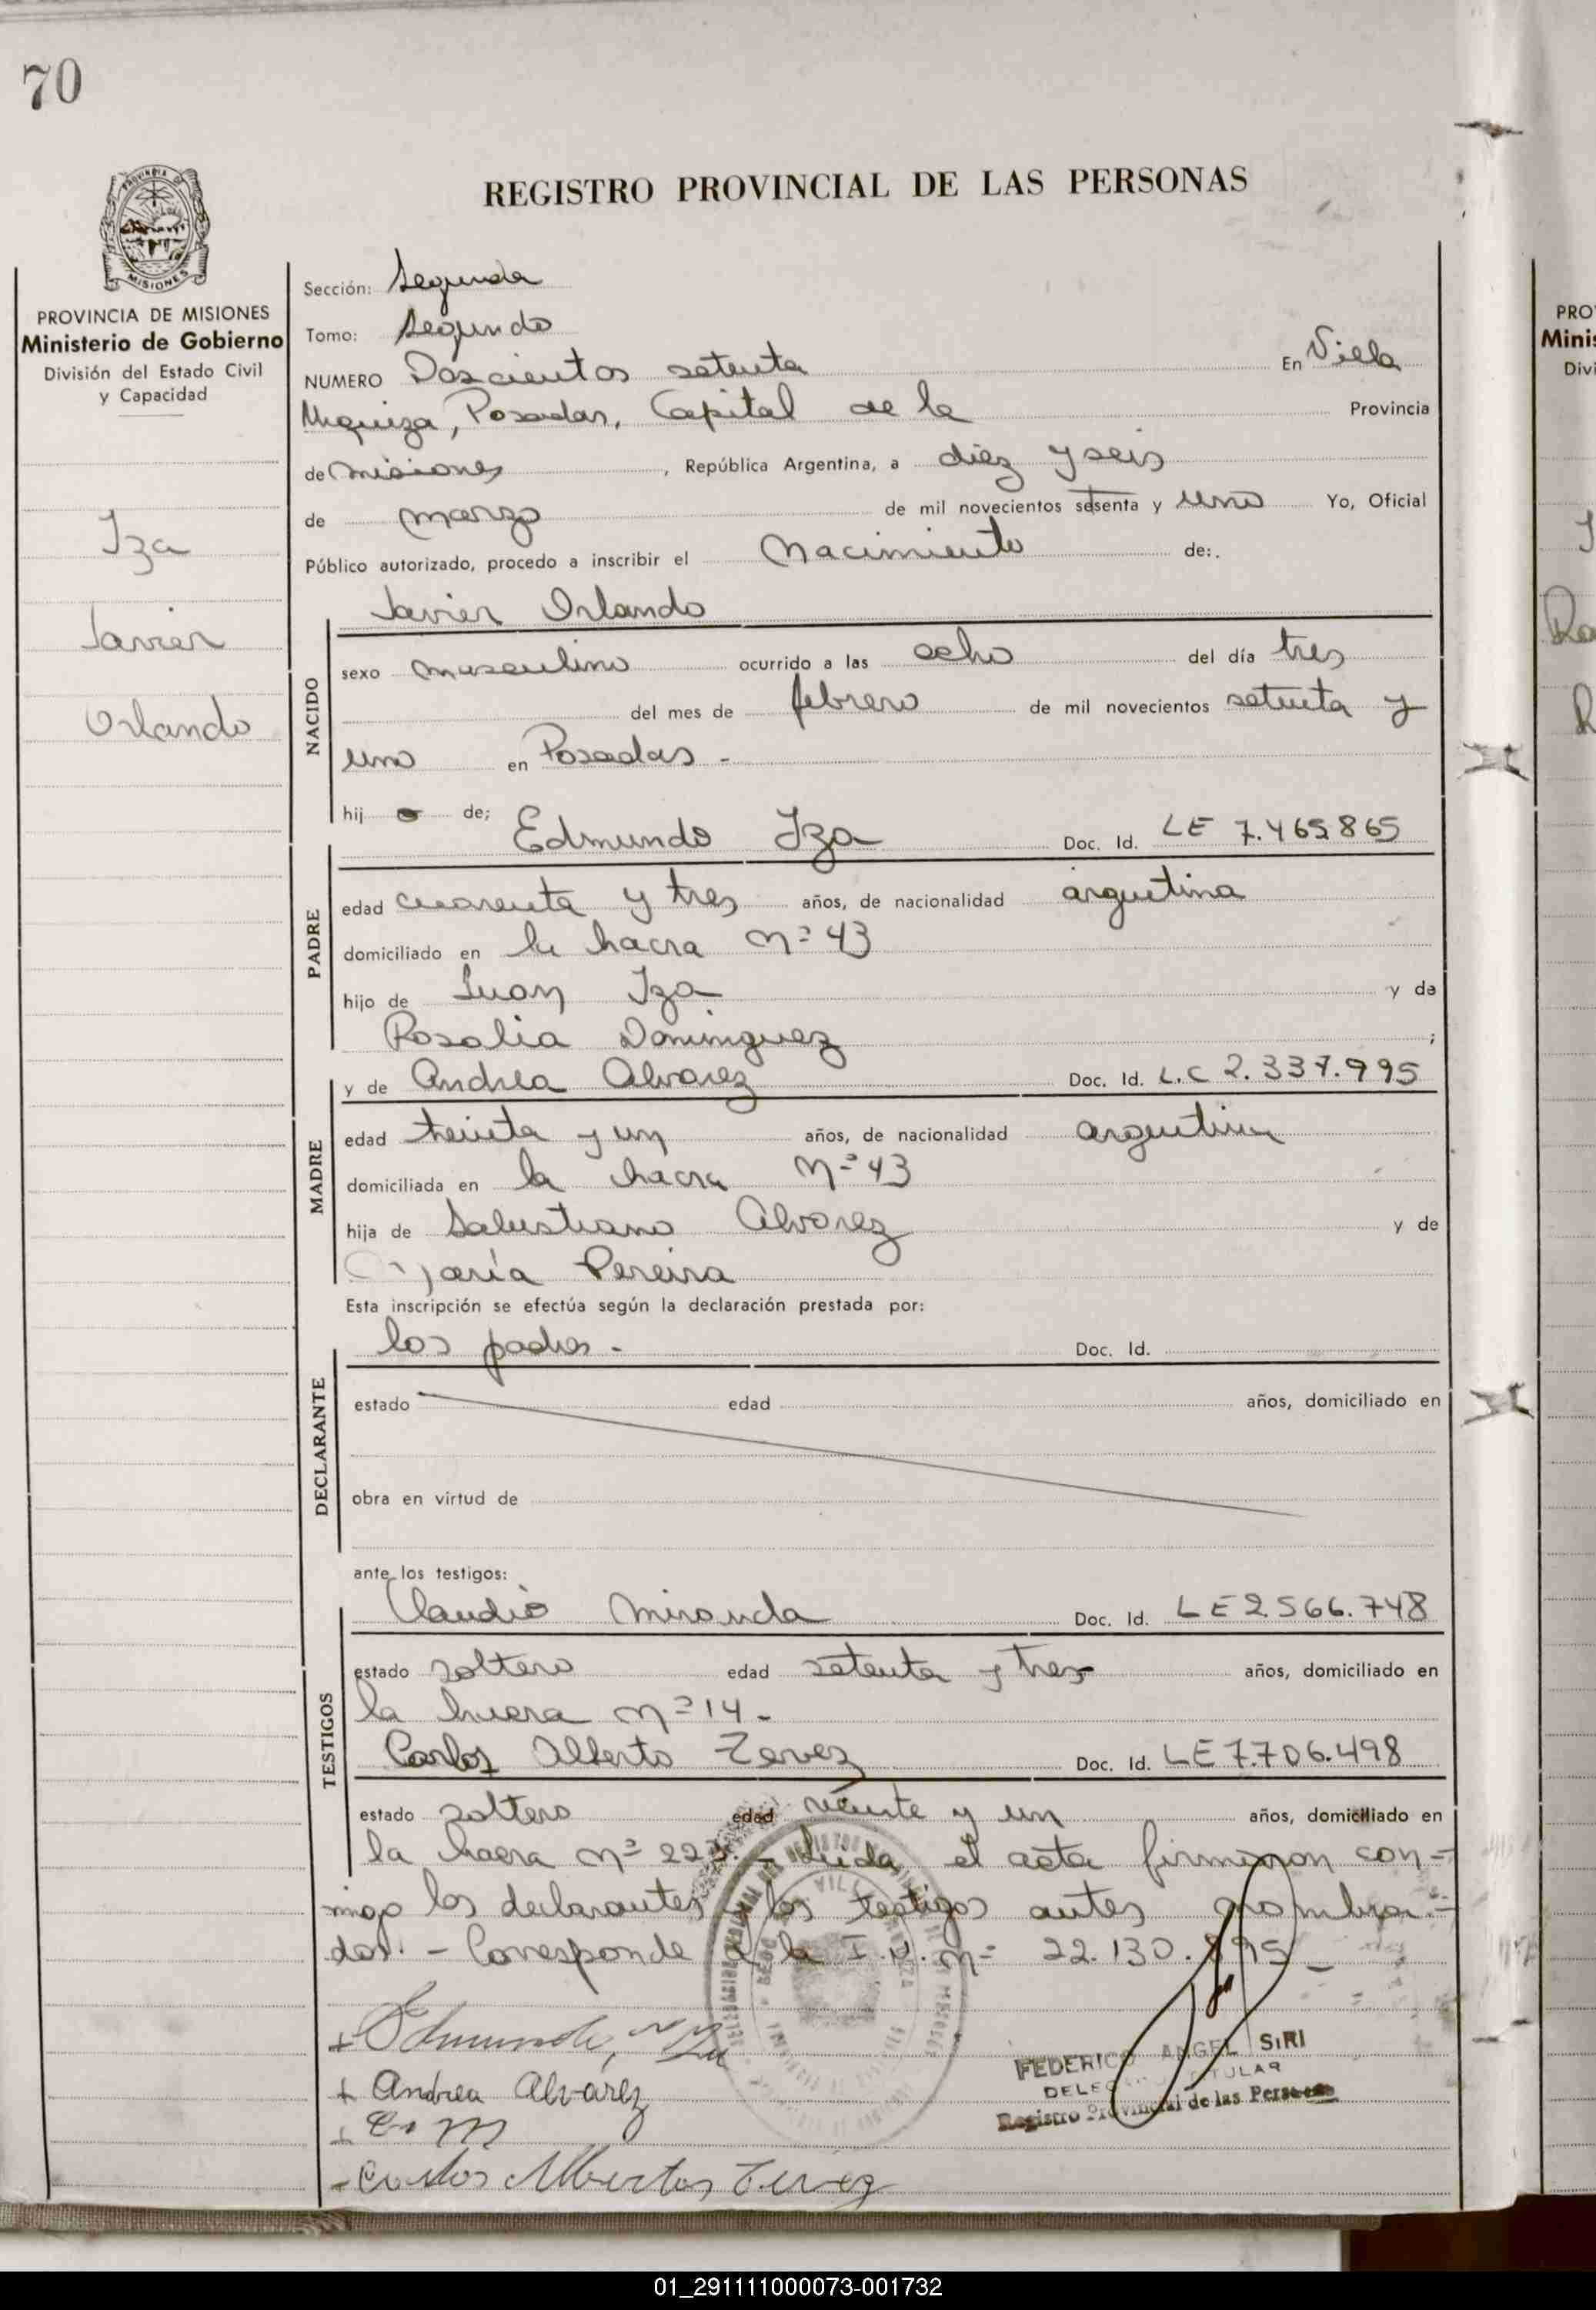 70
PROVINCIA DE
MISIONES
PROVINCIA DE MISIONES
Ministerio de Gobierno
División del Estado Civil
y Capacidad
Iza
Javier
Orlando
REGISTRO PROVINCIAL DE LAS PERSONAS
Sección: Segunda
Tomo: Segundo
NUMERO Doscientos setenta En Villa
Urquiza, Posadas, Capital de la Provincia
de misiones, República Argentina, a diez y seis
de marzo de mil novecientos setenta y uno Yo, Oficial
Público autorizado, procedo a inscribir el Nacimiento de:.
Javier Orlando
NACIDO
sexo masculino ocurrido a las ocho del día tres
del mes de febrero de mil novecientos setenta y
uno en Posadas -
hijo de;
Edmundo Iza Doc. Id. LE 7.465.865
PADRE
edad cuarenta y tres años, de nacionalidad argentina
domiciliado en la hacra Nº 43
hijo de Juan Iza y de
Rosalia Dominguez ;
y de Andrea Alvarez Doc. Id. L.C 2.337.995
MADRE
edad treinta y un años, de nacionalidad argentina
domiciliada en la chacra Nº 43
hija de Salustiano Alvarez y de
María Pereira
Esta inscripción se efectúa según la declaración prestada por:
los padres - Doc. Id.
DECLARANTE
estado edad años, domiciliado en
obra en virtud de
ante los testigos:
Claudio Miranda Doc. Id. LE 2.566.748
TESTIGOS
estado soltero edad setenta y tres años, domiciliado en
la Nº 14 -
Carlos Alberto Doc. Id. LE 7.706.498
estado soltero edad veinte y un años, domiciliado en
la hacra Nº - Leida el acta firmaron con-
migo los declarantes y los testigos antes nombra-
dos. - Corresponde a la Nº 22.130.
Andrea Alvarez
C. M
Carlos Albertos
FEDERICO ANGEL SIRI
TITULAR
Registro Provincial de las Personas
PRO
Minis
Divi
01_291111000073-001732